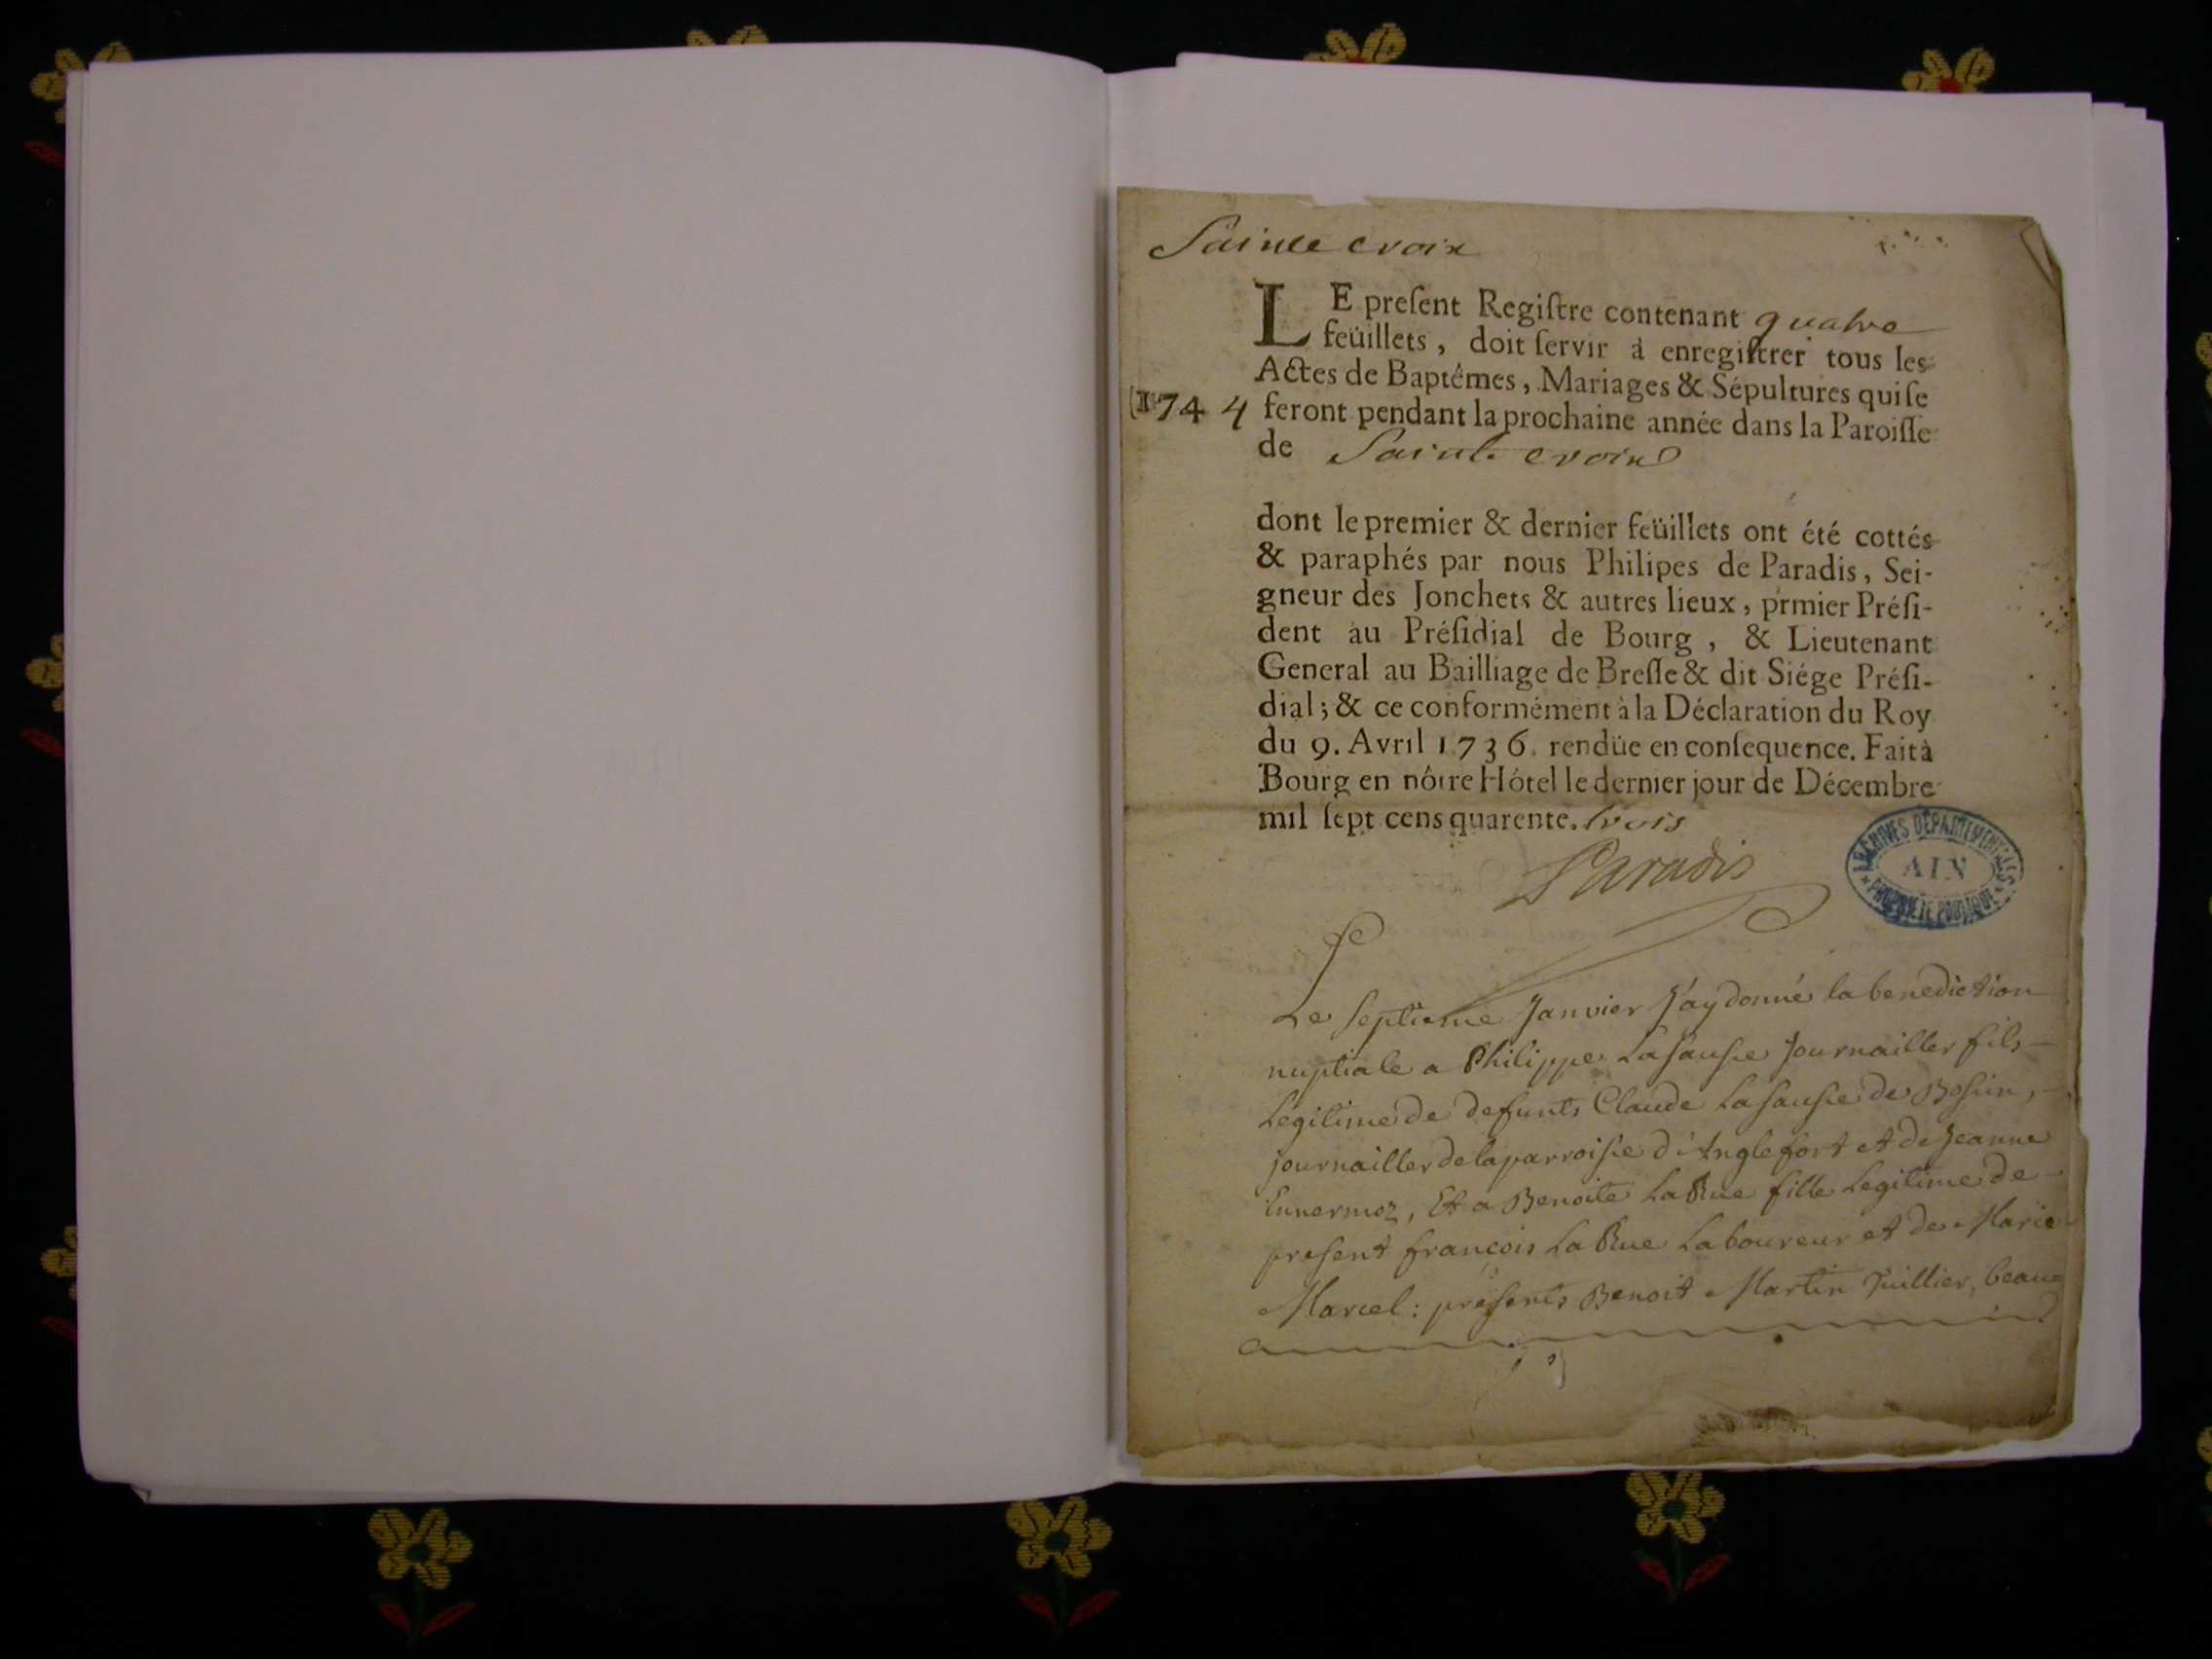 Sainte croix
LE present Registre contenant quatre
feüillets, doit servir à enregistrer tous les
Actes de Baptêmes, Mariages & Sépultures qui se
1744 feront pendant la prochaine année dans la Paroisse
de Sainte croix
dont le premier & dernier feüillets ont été cottés
& paraphés par nous Philipes de Paradis, Sei-
gneur des Jonchets & autres lieux, prmier Prési-
dent au Présidial de Bourg, & Lieutenant
General au Bailliage de Bresse & dit Siége Prési-
dial; & ce conformément à la Déclaration du Roy
du 9. Avril 1736. rendüe en consequence. Fait à
Bourg en nôtre Hôtel le dernier jour de Décembre
mil sept cens quarente. trois
Paradis
ARCHIVES DÉPARTEMENTALES
AIN
PROPRIÉTÉ PUBLIQUE
Le Septieme Janvier J'ay donné la benediction
nuptiale a Philippe Lasausse Journailler fils
Legitime de defunts Claude Lasausse de
journailler de la parroisse d'Anglefort et de Jeanne
Et a Benoite La Rue fille Legitime de
present françois La Rue Laboureur et de Marie
Marcel: presents Benoit Martin Juillier, beau=